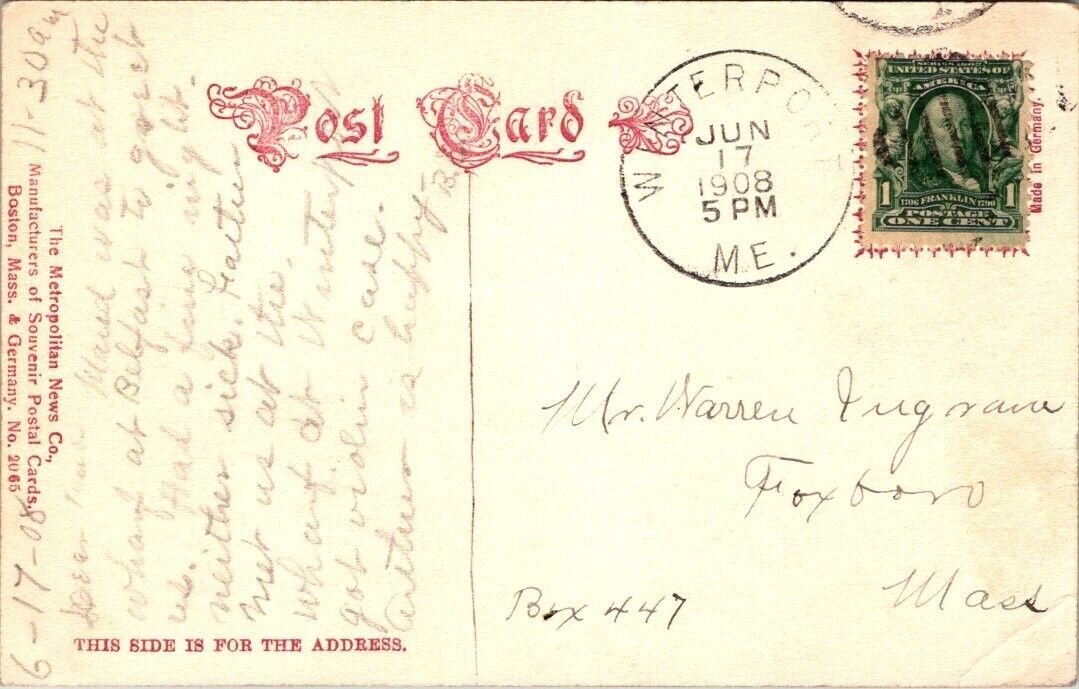 Post Card
WATERPORT
JUN
17
1908
5 PM
ME.
SERIES 1902
UNITED STATES OF
AMERICA
1 1706 FRANKLIN 1790 1
POSTAGE
ONE CENT
Made in Germany.
Mr. Warren Ingram
Foxboro
Mass
Box 447
6-17-08 11-30 am
Maud was at the
wharf at Belfast to greet
us. Had a fine night.
neither sick. Father
met us at the
wharf at Winterport
got violin case.
Arthur is happy-
The Metropolitan News Co.,
Manufacturers of Souvenir Postal Cards,
Boston, Mass. & Germany. No. 2065
THIS SIDE IS FOR THE ADDRESS.